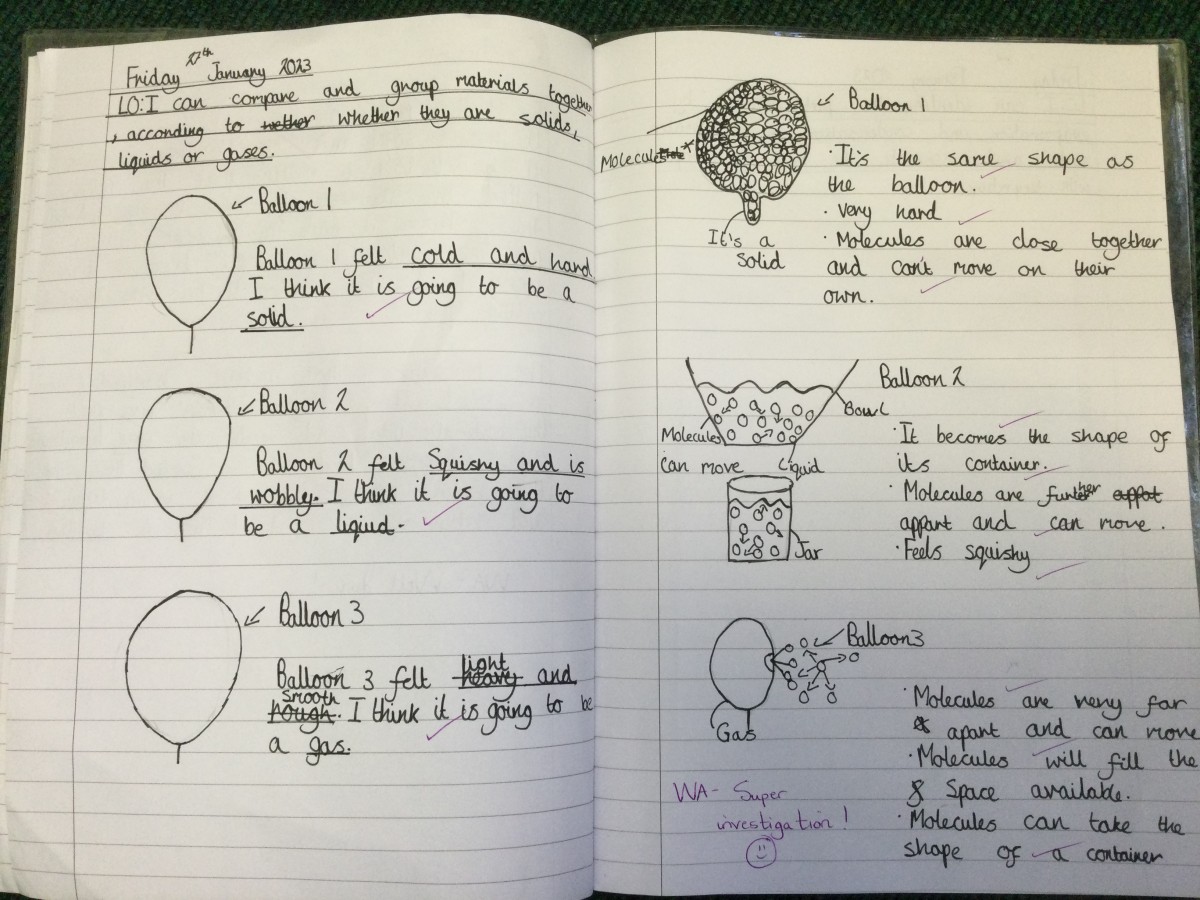 27th
Friday January 2023
LO: I can compare and group materials together
, according to wether whether they are solids,
liquids or gases.
Balloon 1
Balloon 1 felt cold and hard
I think it is going to be a
solid.
Balloon 2
Balloon 2 felt Squishy and is
wobbly. I think it is going to
be a liqiud.
Balloon 3
light
Balloon 3 felt heavy and
smooth
rough. I think it is going to be
a gas.
Balloon 1
Molecules
It's a
solid
· It's the same shape as
the balloon.
· Very hard
· Molecules are close together
and can't move on their
own.
Balloon 2
Bowl
Molecules
can move
Liquid
Jar
· It becomes the shape of
its container.
· Molecules are further appat
appart and can move.
· Feels squishy
Balloon 3
Gas
· Molecules are very far
apart and can move
· Molecules will fill the
Space available.
· Molecules can take the
shape of a container
WA- Super
investigation!